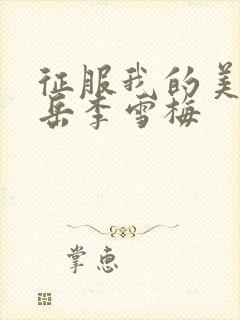 征服我的美
岳李雪梅
掌惠